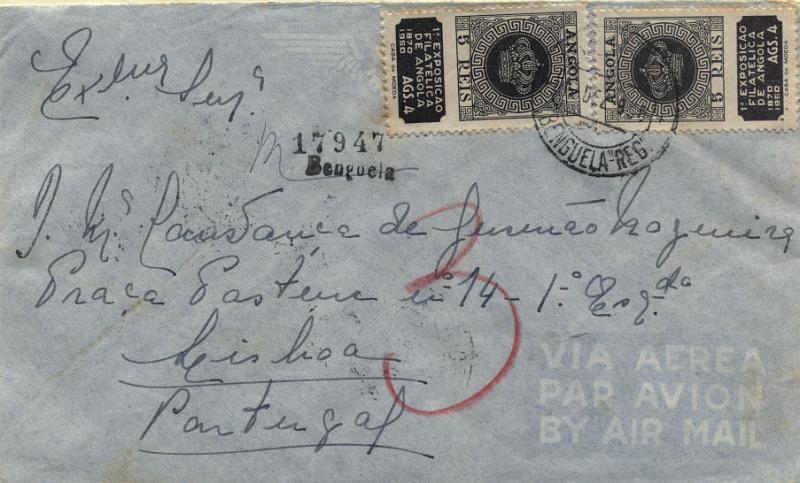 5 REIS
ANGOLA
1ª EXPOSIÇÃO
FILATÉLICA
DE ANGOLA
1870 1960
AGS. 4
CASA DA MOEDA
ANGOLA
5 REIS
1ª EXPOSIÇÃO
FILATÉLICA
DE ANGOLA
1870 1960
AGS. 4
CASA DA MOEDA
BENGUELA "REG."
Exma Senª
17947
Benguela
D. Mª Constança de Gusmão
Praça Pasteur nº 14 - 1º Esqdo
Lisboa
Portugal
3
VIA AEREA
PAR AVION
BY AIR MAIL